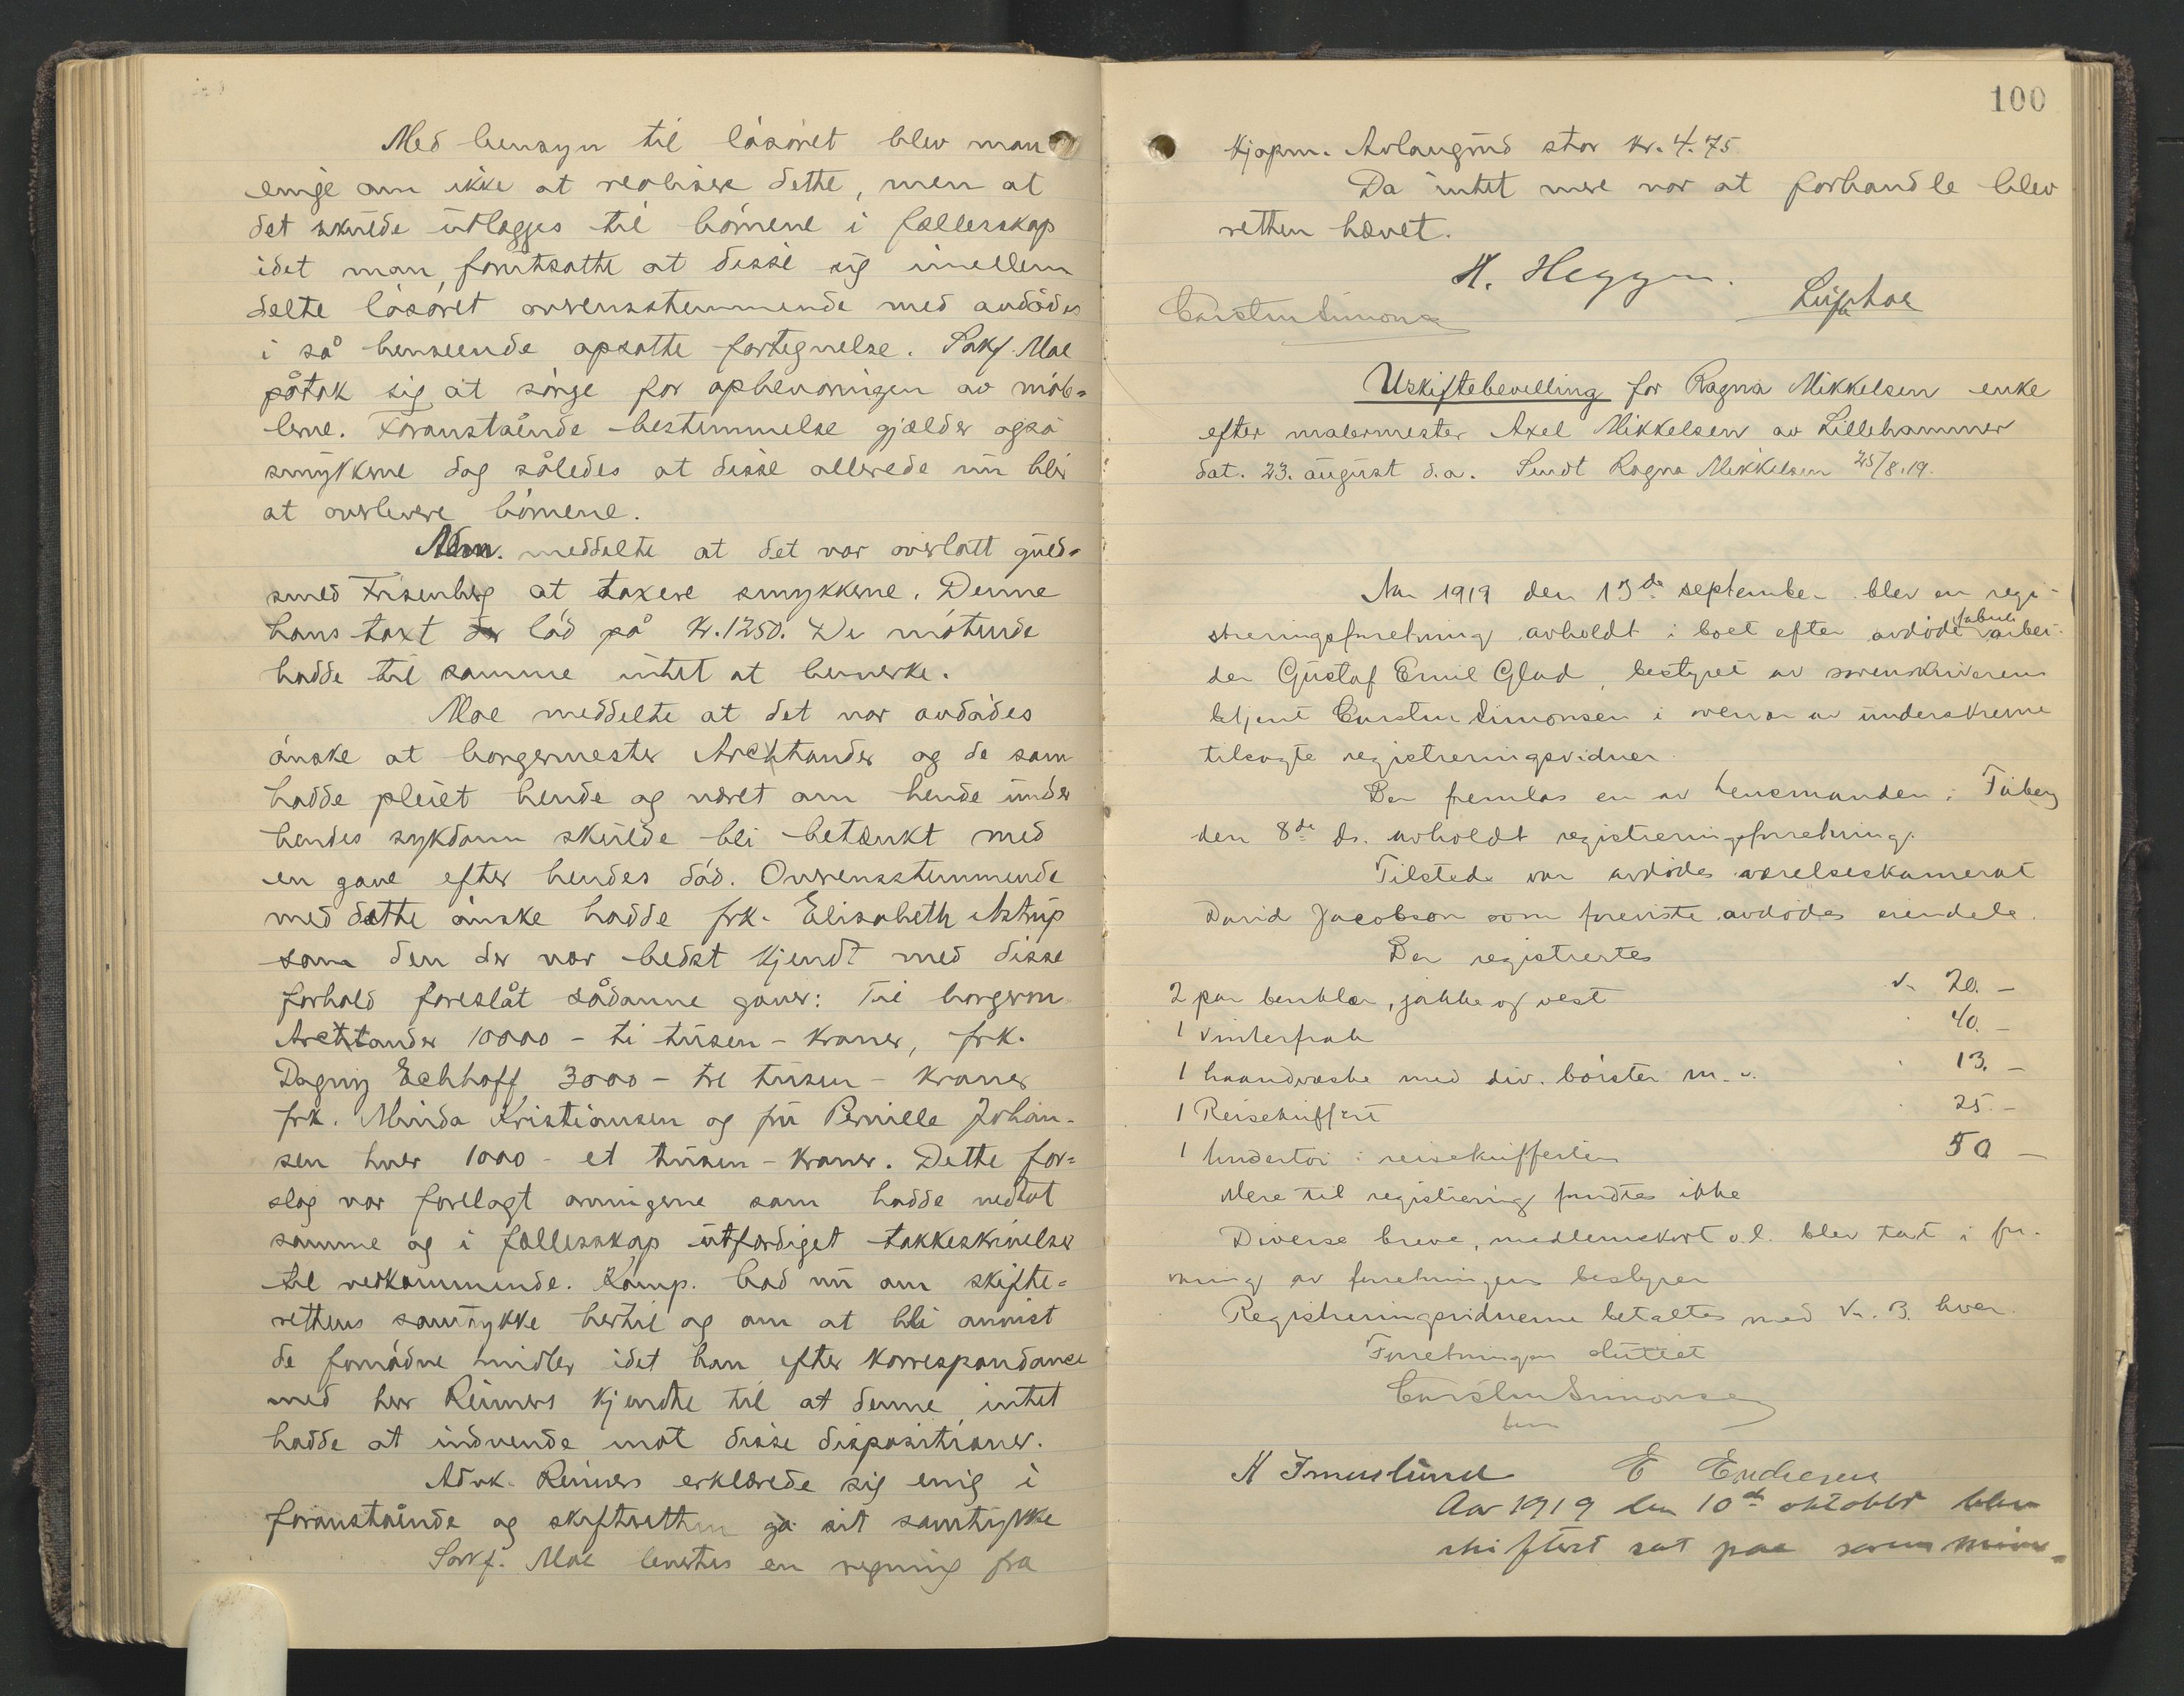 Med hensyn til lösöret blev man
enige om ikke at realisere dette, men at
det skulde utlægges til börnene i fællesskap
idet man forutsatte at disse sig imellem
delte lösöret overensstemmende med avdödes
i så henseende opsatte fortegnelse. Sakf. Moe
påtok sig at sörge for opbevaringen av möb-
lerne. Foranstående bestemmelse gjælder også
smykkerne dog således at disse allerede nu blir
at overlevere börnene.
Adm. meddelte at det var overlatt guld-
smed Frisenberg at taxere smykkerne. Denne
hans taxt löd på kr. 1250. De mötende
hadde til samme intet at bemerke.
Moe meddelte at det var avdödes
önske at borgermester Arctander og de som
hadde pleiet hende og været om hende under
hendes sykdom skulde bli betænkt med
en gave efter hendes död. Overensstemmende
med dette önske hadde frk. Elisabeth Astrup
som den der var bedst kjendt med disse
forhold foreslåt sådanne gaver: Til borgerm.
Arctander 10000 - ti tusen - kroner, frk.
Dagny Eckhoff 3000 - tre tusen - kroner
frk. Minda Kristiansen og fru Pernille Johan-
sen hver 1000 - et tusen - kroner. Dette for-
slag var forelagt arvingerne som hadde vedtat
samme og i fællesskap utfærdiget takkeskrivelser
til vedkommende. Komp. bad nu om skifte-
rettens samtykke hertil og om at bli anvist
de fornödne midler idet han efter korrespondance
med herr Reimers kjendte til at denne intet
hadde at indvende mot disse dispositioner.
Advk. Reimers erklærede sig enig i
foranstående og skifteretten ga sit samtykke
Sakf. Moe leverte en regning fra
100
kjøpm. Avlangrud stor kr. 4.75
Da intet mere var at forhandle blev
retten hævet.
H. Heggen.
Carsten Simonsen
Uskiftebevilling for Ragna Mikkelsen enke
efter malermester Axel Mikkelsen av Lillehammer
dat. 23. august d.a. Sendt Ragna Mikkelsen 25/8.19.
Aar 1919 den 13de september blev en regi-
streringsforretning avholdt i boet efter avdöde fabrik arbei-
der Gustaf Emil Glad, bestyret av sorenskriverens
betjent Carsten Simonsen i overvær av underskrevne
tilsagte registreringsvidner.
Der fremlas en av lensmanden i Faaberg
den 8de ds. avholdt registreringsforretning.
Tilstede var avdödes værelseskamerat
David Jacobson som foreviste avdödes eiendele.
Der registrertes
2 par benklær, jakke og vest kr. 20. -
1 Vinterfrak 40. -
1 haandvæske med div. börster m. v. 13. -
1 Reisekuffert 25. -
1 Undertöi i reisekufferten 50 -
Mere til registrering fandtes ikke
Diverse breve, medlemskort o.l. blev tat i for-
varing av forretningens bestyrer
Registreringsvidnerne betaltes med kr. 3. hver.
Forretningen sluttet
Carsten Simonsen
E Endresen
Aar 1919 den 10de oktober blev
skifteret sat paa